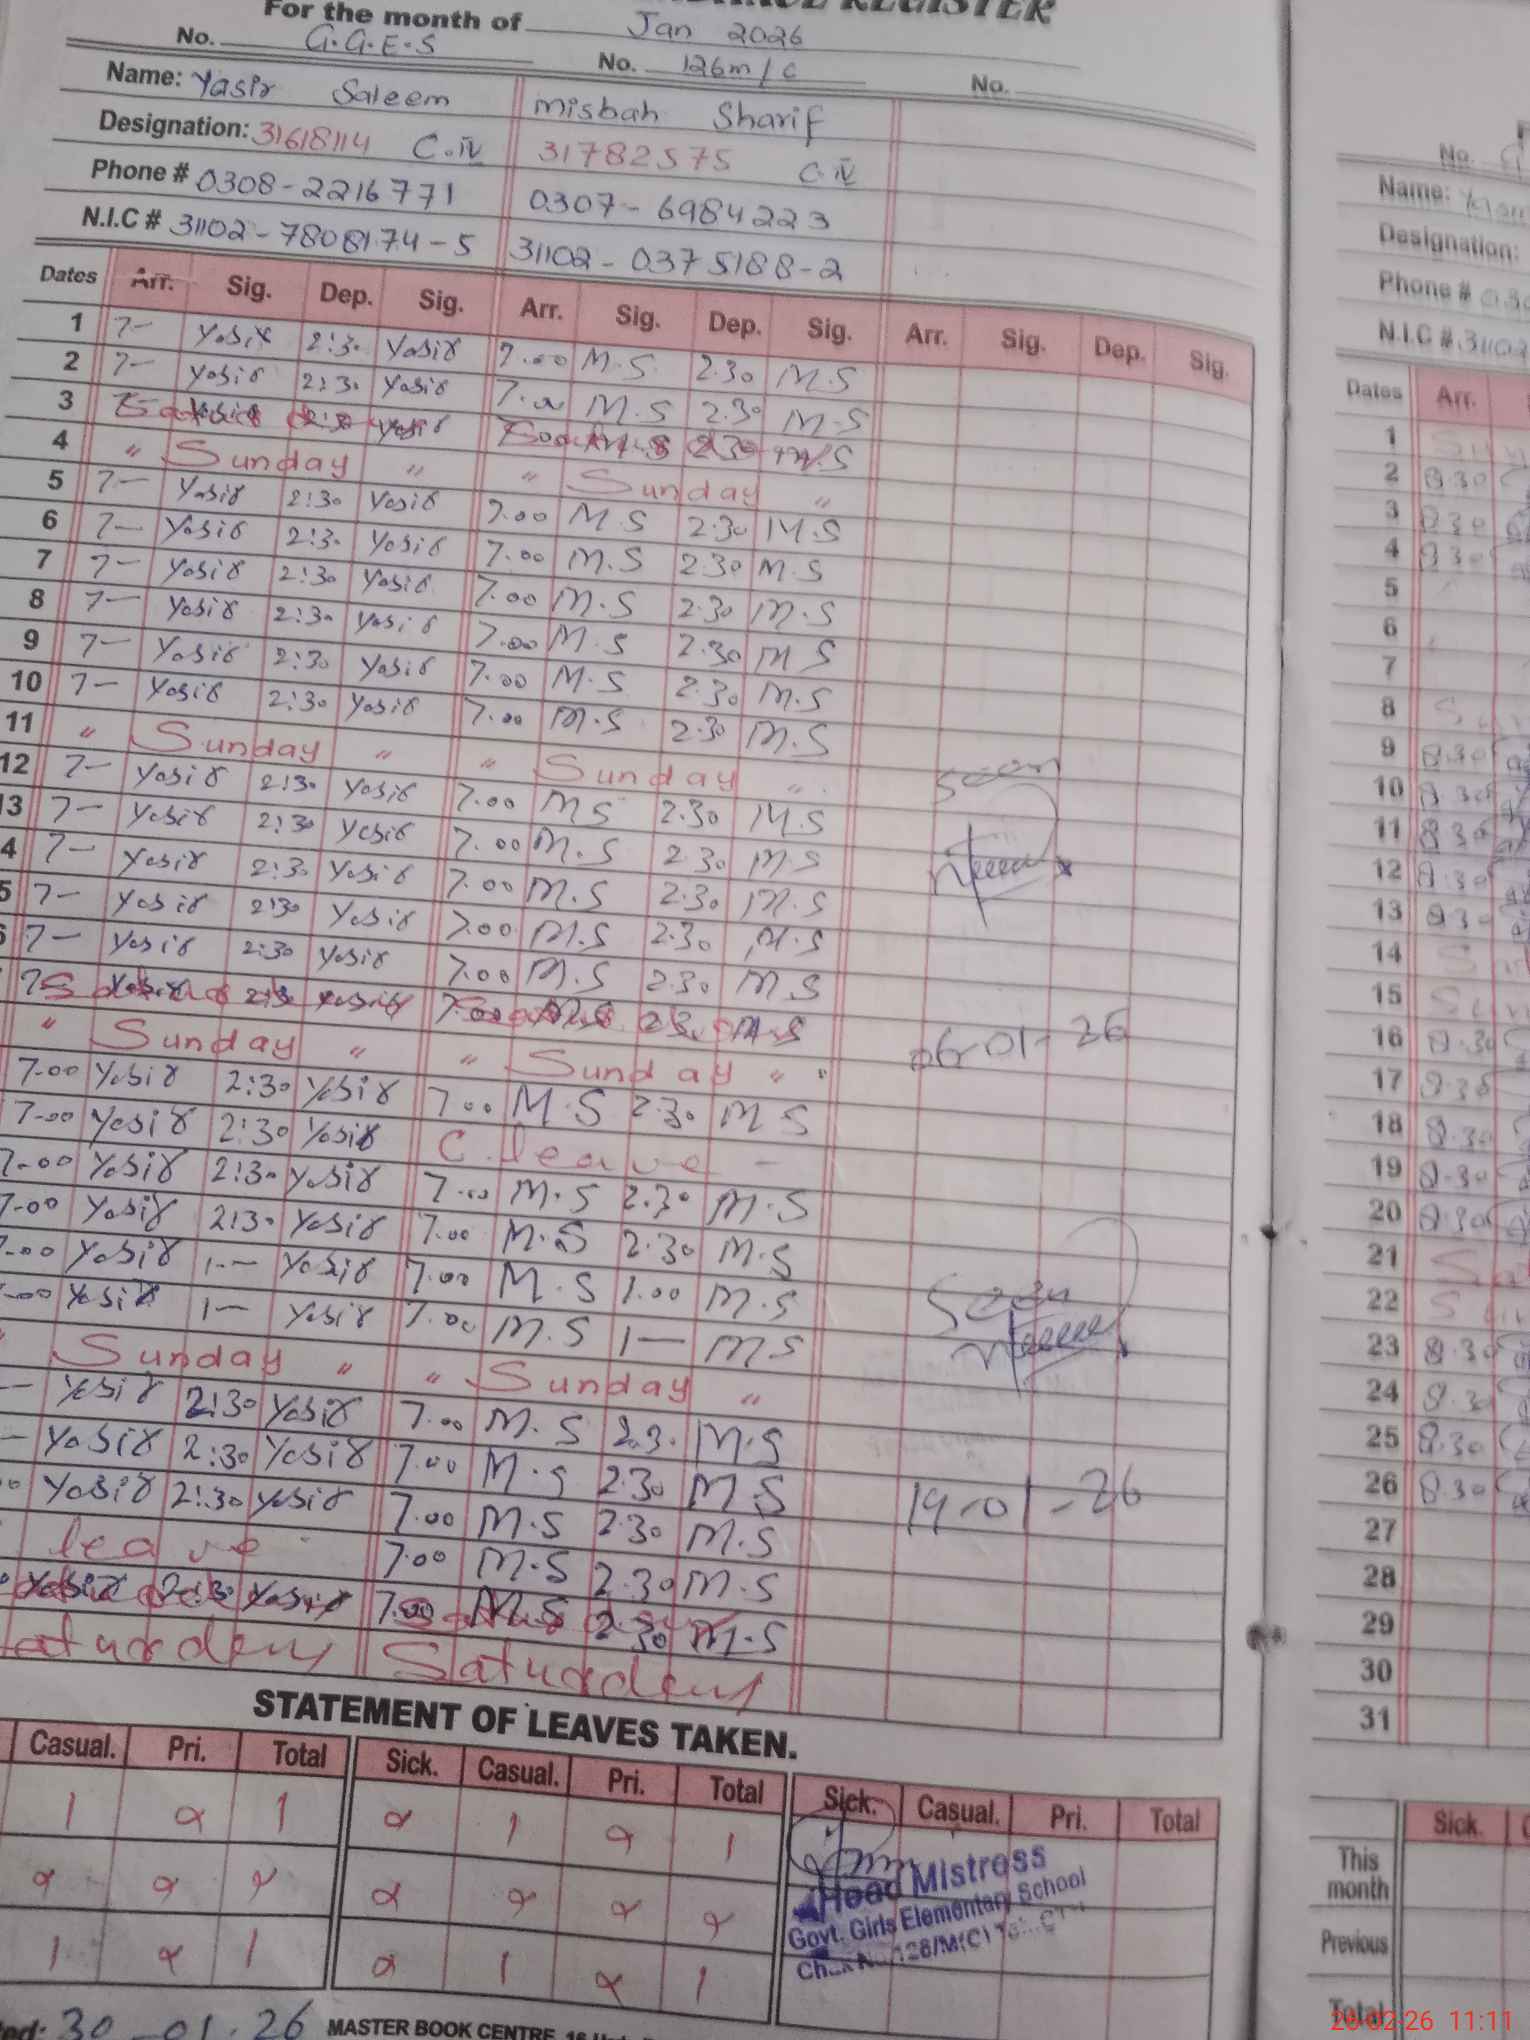 For the month of Jan 2026
No. G.G.E.S No. 126m/c No.
Name: Yasir Saleem misbah Sharif
Designation: 31618114 C.IV 31782575 C.IV
Phone # 0308-2216771 0307-6984223
N.I.C # 31102-7808174-5 31102-0375188-2
Dates Arr. Sig. Dep. Sig. Arr. Sig. Dep. Sig. Arr. Sig. Dep. Sig.
1 7- Yasir 2:30 Yasir 7.00 M.S 2.30 M.S
2 7- Yasir 2:30 Yasir 7.00 M.S 2.30 M.S
3 Yasir M.S
4 " Sunday " " Sunday "
5 7- Yasir 2:30 Yasir 7.00 M.S 2.30 M.S
6 7- Yasir 2:30 Yasir 7.00 M.S 2.30 M.S
7 7- Yasir 2:30 Yasir 7.00 M.S 2.30 M.S
8 7- Yasir 2:30 Yasir 7.00 M.S 2.30 M S
9 7- Yasir 2:30 Yasir 7.00 M.S 2.30 M.S
10 7- Yasir 2:30 Yasir 7.00 M.S 2.30 M.S
11 " Sunday " " Sunday "
12 7- Yasir 2:30 Yasir 7.00 M S 2.30 M.S
3 7- Yasir 2:30 Yasir 7.00 M.S 2.30 M S
4 7- Yasir 2:30 Yasir 7.00 M.S 2.30 M.S
5 7- Yasir 2:30 Yasir 7.00 M.S 2.30 M.S
7- Yasir 2:30 Yasir 7.00 M.S 2.30 M S
M.S
" Sunday " " Sunday "
7-00 Yasir 2:30 Yasir 7.00 M.S 2.30 M S
7-00 Yasir 2:30 Yasir C. leave -
7-00 Yasir 2:30 Yasir 7.00 M.S 2.30 M.S
7-00 Yasir 2:30 Yasir 7.00 M.S 2.30 M.S
-00 Yasir 1-- Yasir 7.00 M.S 1.00 M.S
-00 Yasir 1- Yasir 7.00 M.S 1- M S
Sunday " " Sunday "
- Yasir 2:30 Yasir 7.00 M.S 2.30 M.S
- Yasir 2:30 Yasir 7.00 M.S 2.30 M.S
Yasir 2:30 Yasir 7.00 M.S 2.30 M.S
leave 7.00 M.S 2.30 M.S
Yasir 2:30 Yasir 7.00 M.S 2.30 M.S
Saturday
Seen
Seen
19-01-26
STATEMENT OF LEAVES TAKEN.
Casual. Pri. Total Sick. Casual. Pri. Total Sick. Casual. Pri. Total
1 1 1 1
1 1 1 1
Head Mistress
Govt. Girls Elementary School
30-01-26 MASTER BOOK CENTRE
No.
Name:
Designation:
Phone #
N.I.C # 31102
Dates Arr.
1
2 8.30
3 8.30
4 8.30
5
6
7
8
9 8.30
10 8.30
11 8.30
12 8.30
13 8.30
14
15
16 8.30
17 8.30
18 8.30
19 8.30
20 8.30
21
22
23 8.30
24 8.30
25 8.30
26 8.30
27
28
29
30
31
Sick.
This month
Previous
Total
26-02-26 11:11